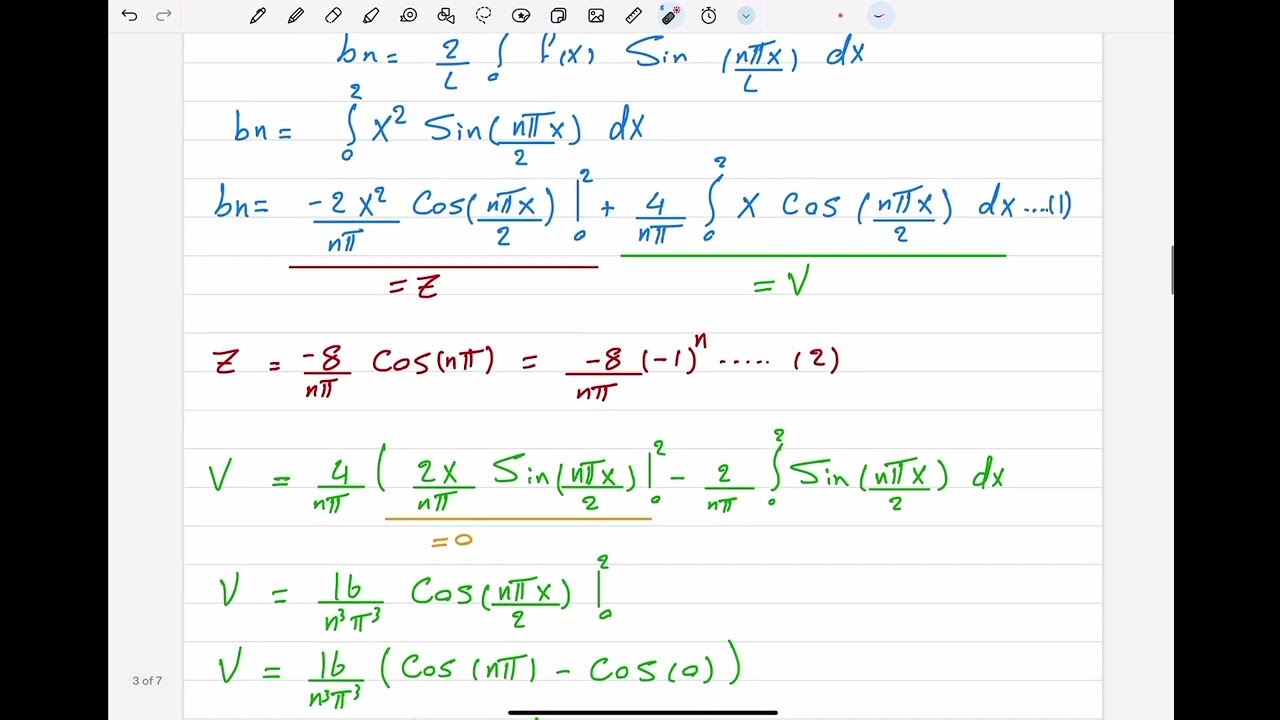 bn = 2/L ∫₀ f(x) Sin (nπx/L) dx
bn = ∫₀² x² Sin(nπx/2) dx
bn = -2x²/nπ Cos(nπx/2) |₀² + 4/nπ ∫₀² x Cos (nπx/2) dx ....(1)
= Z = V
Z = -8/nπ Cos(nπ) = -8/nπ (-1)ⁿ ..... (2)
V = 4/nπ ( 2x/nπ Sin(nπx/2) |₀² - 2/nπ ∫₀² Sin (nπx/2) dx
= 0
V = 16/n³π³ Cos(nπx/2) |₀²
V = 16/n³π³ (Cos(nπ) - Cos(0))
3 of 7